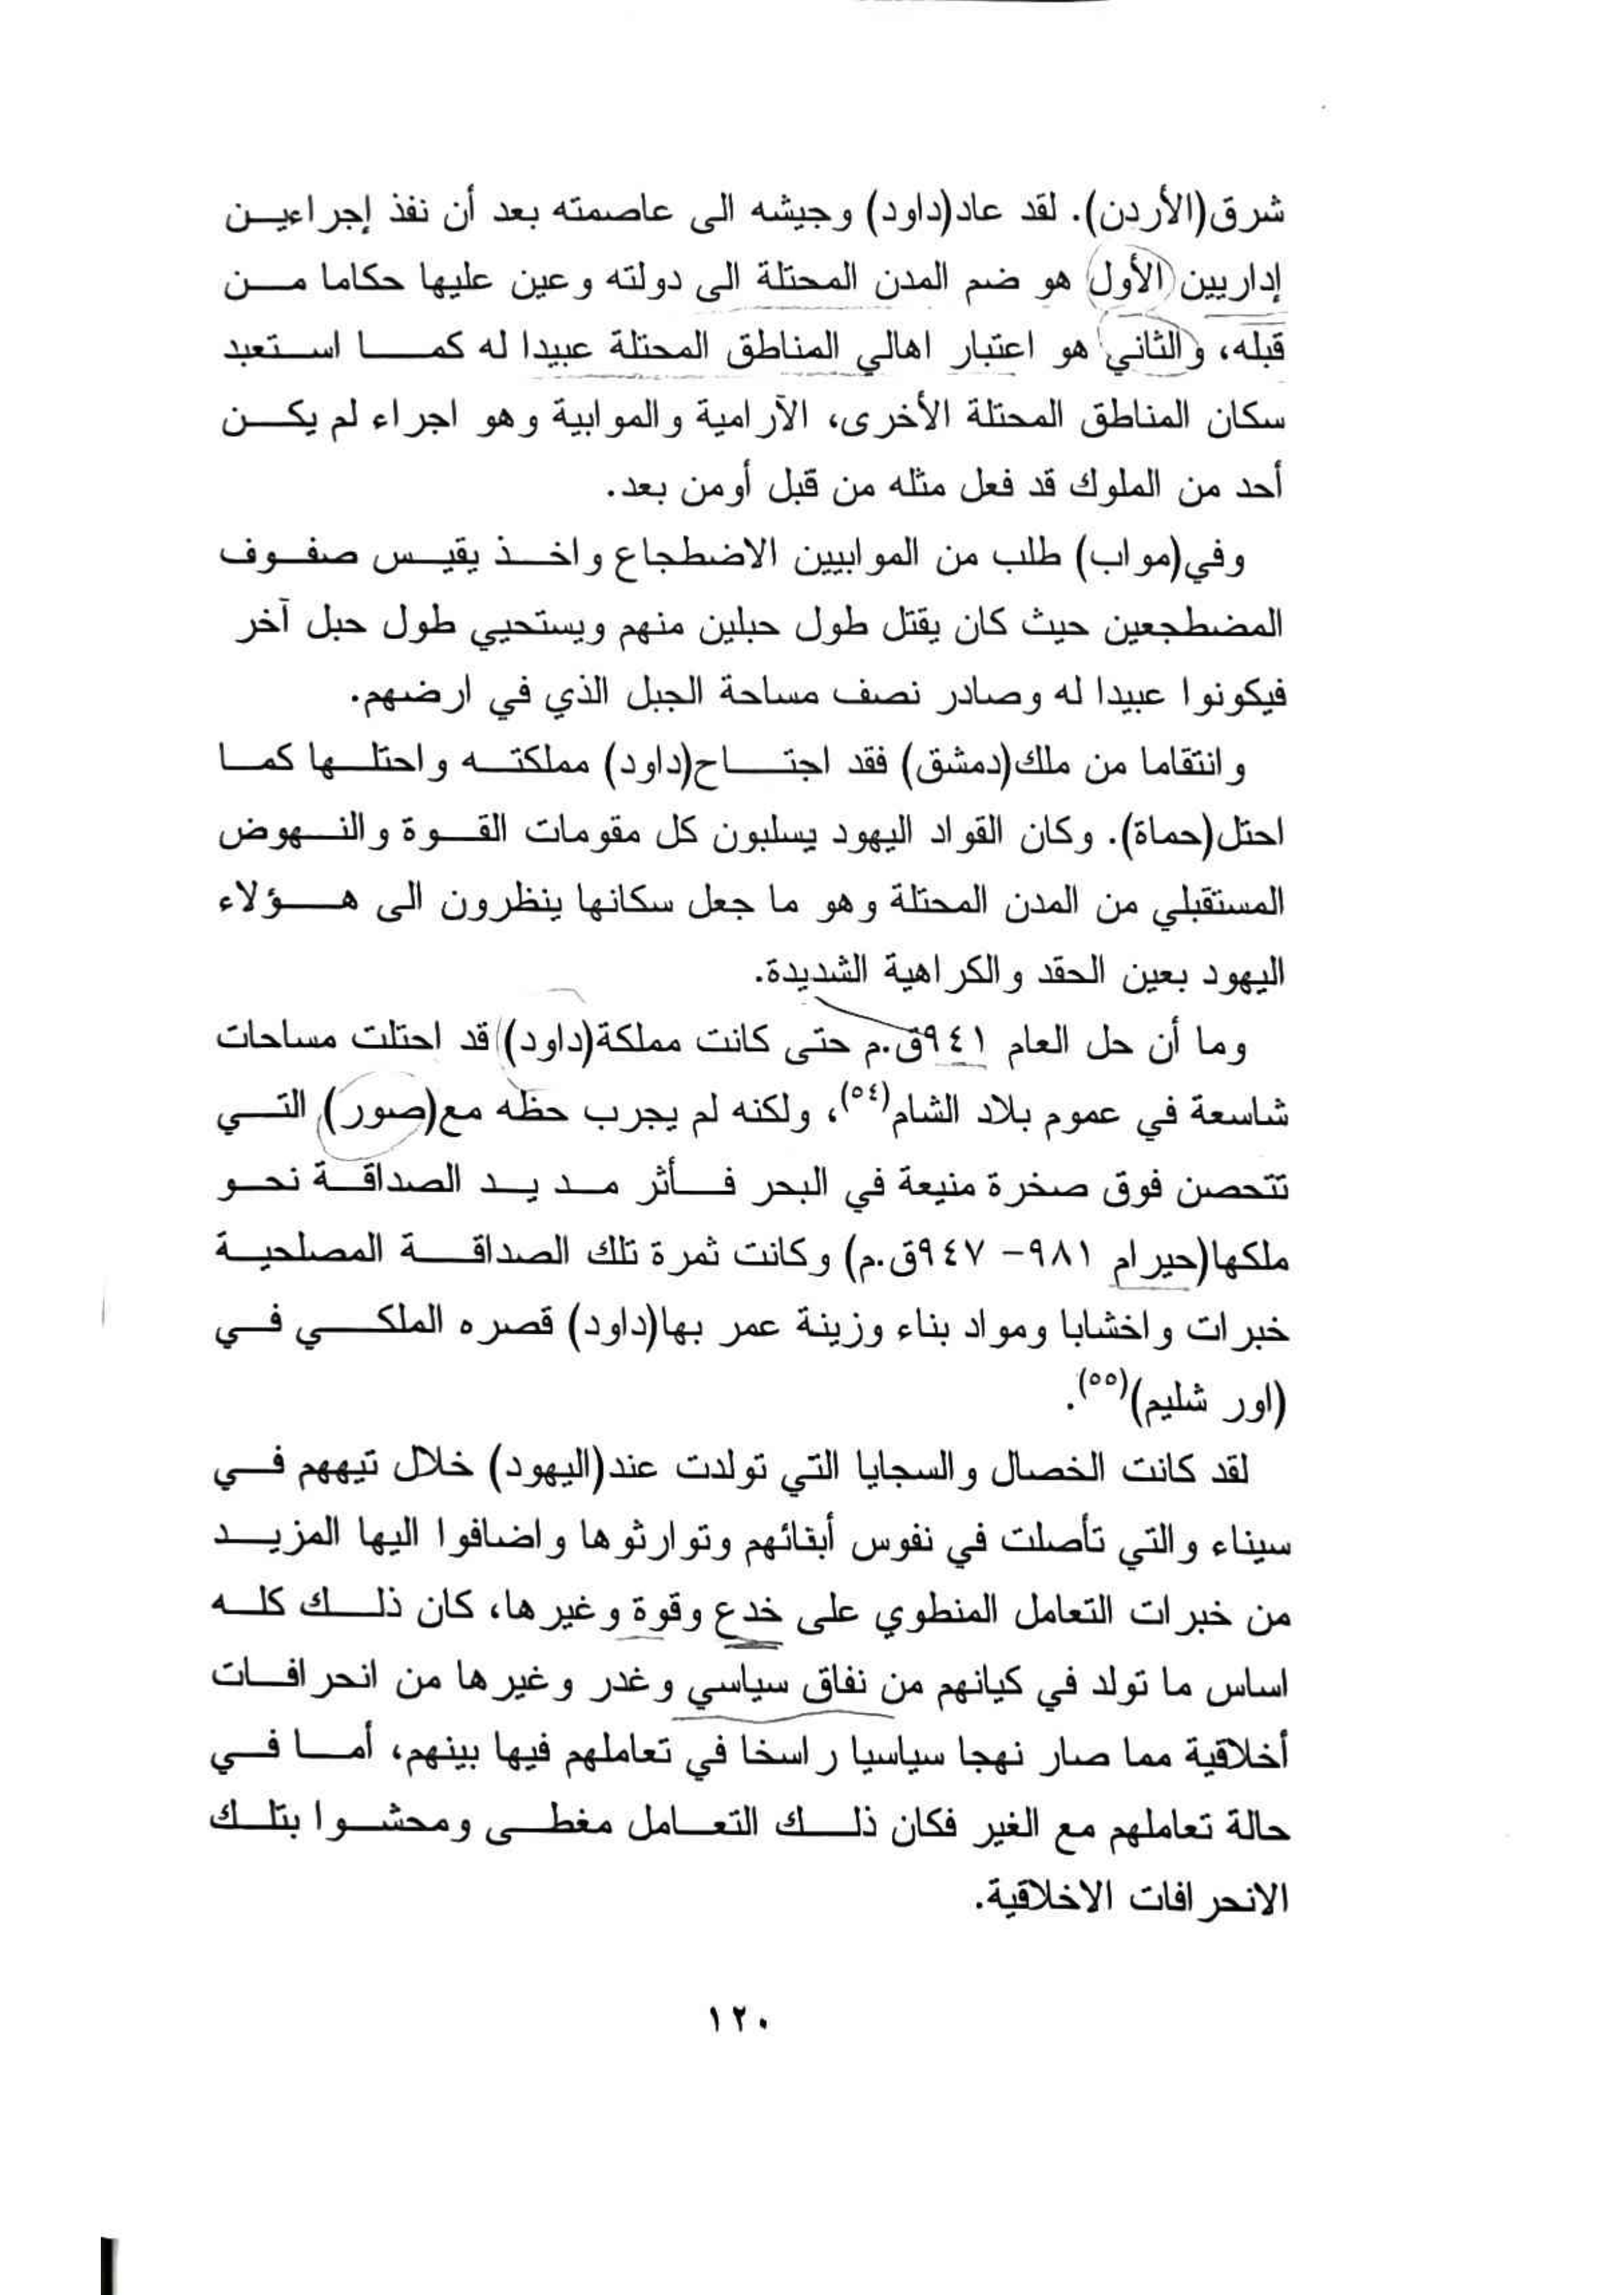 شرق(الأردن). لقد عاد(داود) وجيشه الى عاصمته بعد أن نفذ إجراءين
إداريين الأول هو ضم المدن المحتلة الى دولته وعين عليها حكاما من
قبله، والثاني هو اعتبار اهالي المناطق المحتلة عبيدا له كما استعبد
سكان المناطق المحتلة الأخرى، الآرامية والموابية وهو اجراء لم يكن
أحد من الملوك قد فعل مثله من قبل أومن بعد.
وفي(مواب) طلب من الموابيين الاضطجاع واخذ يقيس صفوف
المضطجعين حيث كان يقتل طول حبلين منهم ويستحيي طول حبل آخر
فيكونوا عبيدا له وصادر نصف مساحة الجبل الذي في ارضهم.
وانتقاما من ملك(دمشق) فقد اجتاح(داود) مملكته واحتلها كما
احتل(حماة). وكان القواد اليهود يسلبون كل مقومات القوة والنهوض
المستقبلي من المدن المحتلة وهو ما جعل سكانها ينظرون الى هؤلاء
اليهود بعين الحقد والكراهية الشديدة.
وما أن حل العام ٩٤١ق.م حتى كانت مملكة(داود) قد احتلت مساحات
شاسعة في عموم بلاد الشام(٥٤)، ولكنه لم يجرب حظه مع(صور) التي
تتحصن فوق صخرة منيعة في البحر فأثر مد يد الصداقة نحو
ملكها(حيرام ٩٨١- ٩٤٧ق.م) وكانت ثمرة تلك الصداقة المصلحية
خبرات واخشابا ومواد بناء وزينة عمر بها(داود) قصره الملكي في
(اور شليم)(٥٥).
لقد كانت الخصال والسجايا التي تولدت عند(اليهود) خلال تيههم في
سيناء والتي تأصلت في نفوس أبنائهم وتوارثوها واضافوا اليها المزيد
من خبرات التعامل المنطوي على خدع وقوة وغيرها، كان ذلك كله
اساس ما تولد في كيانهم من نفاق سياسي وغدر وغيرها من انحرافات
أخلاقية مما صار نهجا سياسيا راسخا في تعاملهم فيها بينهم، أما في
حالة تعاملهم مع الغير فكان ذلك التعامل مغطى ومحشوا بتلك
الانحرافات الاخلاقية.
١٢٠